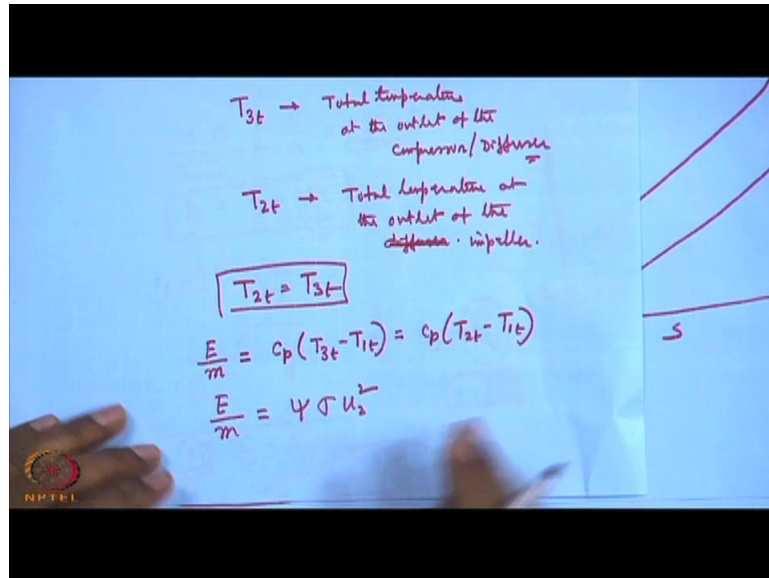 T3t → Total temperature
at the outlet of the
compressor/Diffuser
T2t → Total temperature at
the outlet of the
diffuser. impeller.
T2t = T3t
E/m = cp(T3t-T1t) = cp(T2t-T1t)
E/m = ψ σ U2²
S
NPTEL